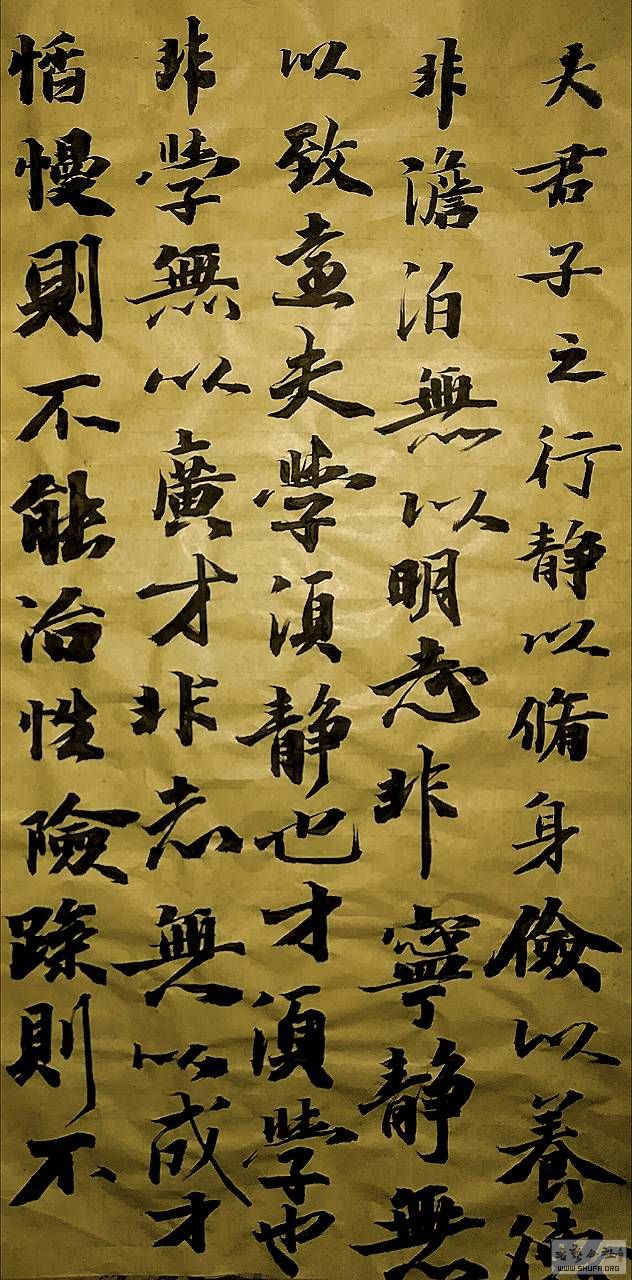 夫君子之行静以脩身儉以養德
非澹泊無以明志非寧静無
以致遠夫學湏静也才湏學也
非學無以廣才非志無以成才
慆慢則不能冶性險躁則不
WWW.SHUFA.ORG